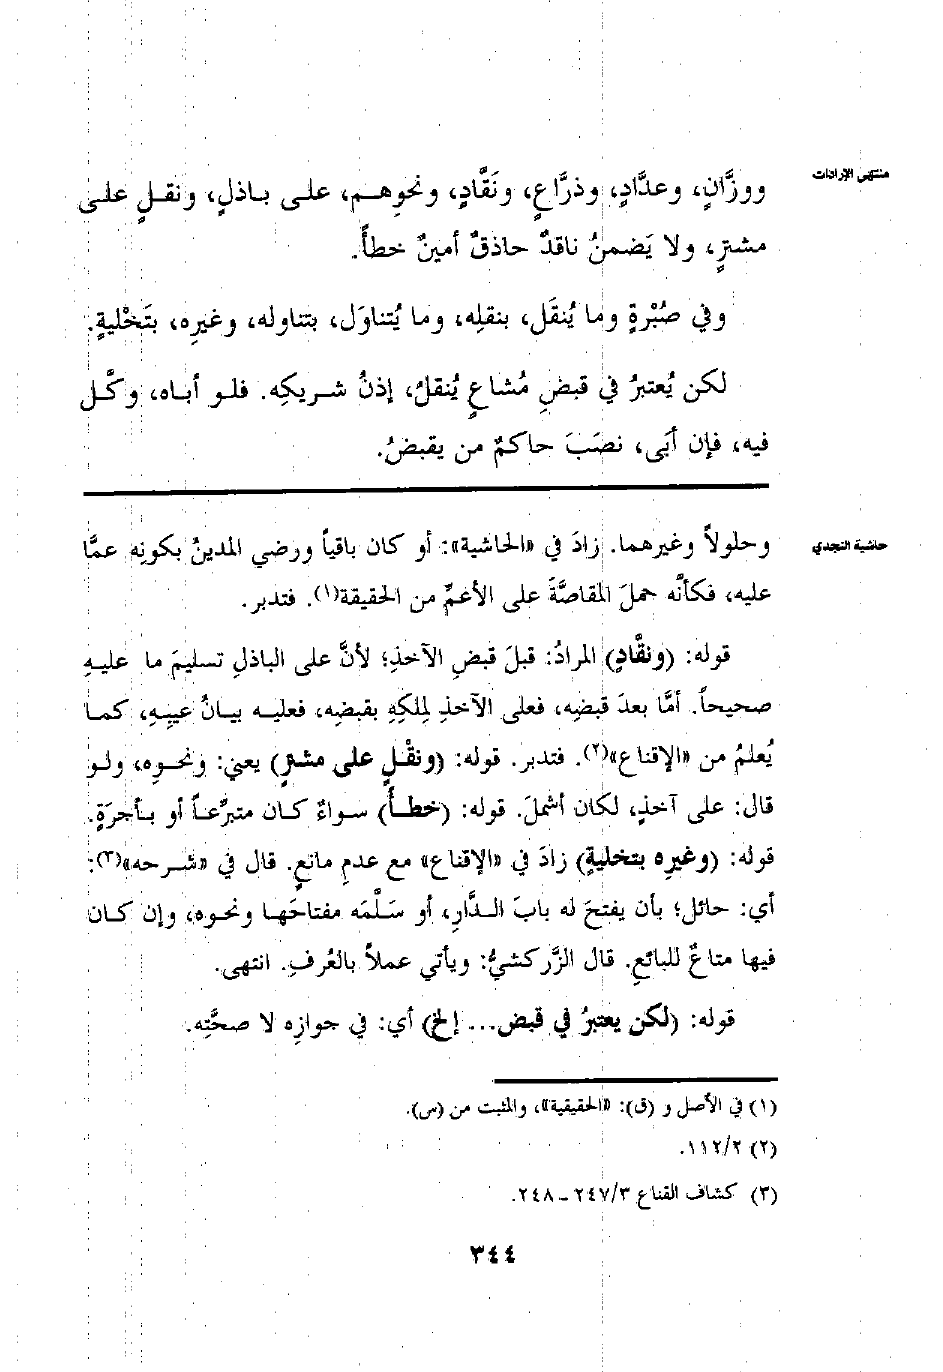 منتهى الإرادات
ووزَّانٍ، وعدَّادٍ، وذرَّاعٍ، ونَقَّادٍ، ونحوِهم، على باذلٍ، ونقلٍ على
مشترٍ، ولا يَضمنُ ناقدٌ حاذقٌ أمينٌ خطأً.
وفي صُبْرةٍ وما يُنقَل، بنقلِه، وما يُتناوَل، بتناوله، وغيرِه، بتَخْليةٍ.
لكن يُعتبرُ في قبضِ مُشاعٍ يُنقلُ، إذنُ شريكِه. فلو أباه، وكَّل
فيه، فإن أبَى، نصَبَ حاكمٌ من يقبضُ.
حاشية النجدي
وحلولاً وغيرهما. زادَ في «الحاشية»: أو كان باقياً ورضي المدينُ بكونِه عمَّا
عليه، فكأنَّه حملَ المقاصَّةَ على الأعمِّ من الحقيقة(١). فتدبر.
قوله: (ونقَّادٍ) المرادُ: قبلَ قبضِ الآخذِ؛ لأنَّ على الباذلِ تسليمَ ما عليهِ
صحيحاً. أمَّا بعدَ قبضِه، فعلى الآخذِ لِملكِهِ بقبضِه، فعليه بيانُ عيبِهِ، كما
يُعلمُ من «الإقناع»(٢). فتدبر. قوله: (ونقْلٍ على مشترٍ) يعني: ونحوِه، ولو
قال: على آخذٍ، لكان أشملَ. قوله: (خطأً) سواءٌ كان متبرِّعاً أو بأجرَةٍ.
قوله: (وغيرِه بتخليةٍ) زادَ في «الإقناع» مع عدمِ مانعٍ. قال في «شرحه»(٣):
أي: حائل؛ بأن يفتحَ له بابَ الدَّارِ، أو سَلَّمَه مفتاحَها ونحوه، وإن كان
فيها متاعٌ للبائعِ. قال الزَّركشيُّ: ويأتي عملاً بالعُرفِ. انتهى.
قوله: (لكن يعتبرُ في قبض... إلخ) أي: في جوازِه لا صحَّتِه.
(١) في الأصل و (ق): «الحقيقية»، والمثبت من (س).
(٢) ١١٢/٢.
(٣) كشاف القناع ٢٤٧/٣ - ٢٤٨.
٣٤٤